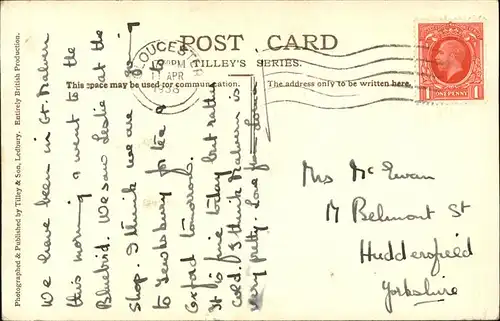 POST CARD
TILLEY'S SERIES.
This space may be used for communication.
The address only to be written here.
GLOUCESTER
PM
11 APR
1938
1 ONE PENNY 1
We have been in Gt. Malvern
this morning & went to the
Bluebird. We saw Leslie at the
shop. I think we are going
to Tewkesbury for tea & to
Oxford tomorrow.
It is fine today but rather
cold. I think Malvern is
very pretty. Love from
Mrs McEwan
17 Belmont St
Huddersfield
Yorkshire
Photographed & Published by Tilley & Son, Ledbury. Entirely British Production.